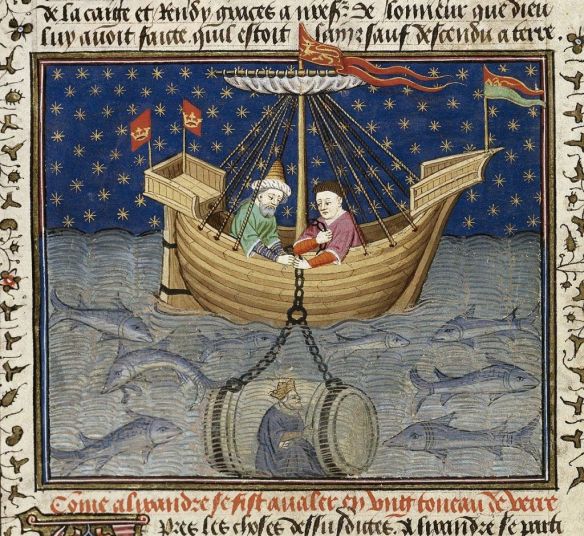 de la caige et Rendy graces a nostre Sr de lonneur que dieu
luy auoit faicte quil estoit sain et sauf descendu a terre
Come alixandre se fist aualer en vng tonneau de verre
Apres les choses dessusdictes Alixandre se parti